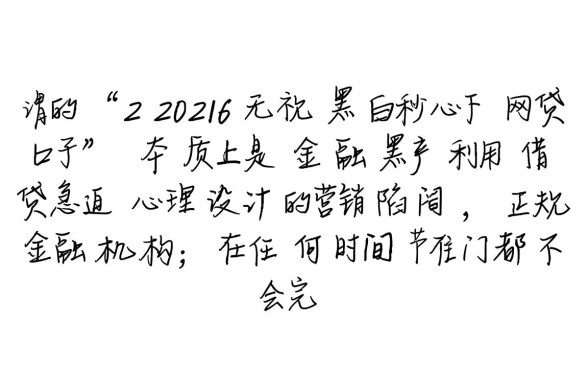 谓的“2 20216无视 黑白秒心于 网贷
口子” 本 质上是 金 融 黑产 利用 借
贷急迫 心理 设计 的营销陷阱 ， 正规
金融 机 构； 在任 何 时间 节准门都 不
会完